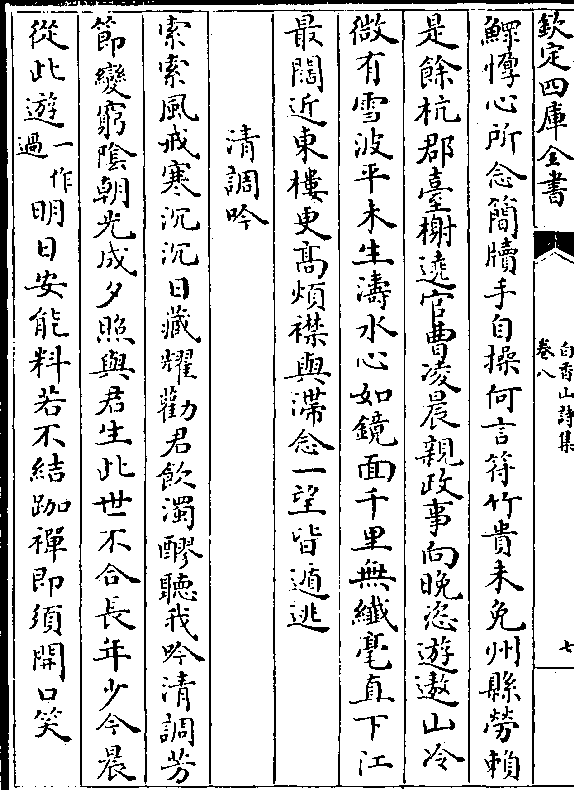 欽定四庫全書
白香山詩集
卷八
七
鰥惸心所念簡牘手自操何言符竹貴未免州縣勞賴
是餘杭郡臺榭遶官曹凌晨親政事向晚恣遊遨山冷
微有雪波平未生濤水心如鏡面千里無纖毫直下江
最闊近東樓更高煩襟與滯念一望皆遁逃
清調吟
索索風戒寒沉沉日藏耀勸君飲濁醪聽我吟清調芳
節變窮陰朝光成夕照與君生此世不合長年少今晨
從此遊一作過明日安能料若不結跏禪即須開口笑